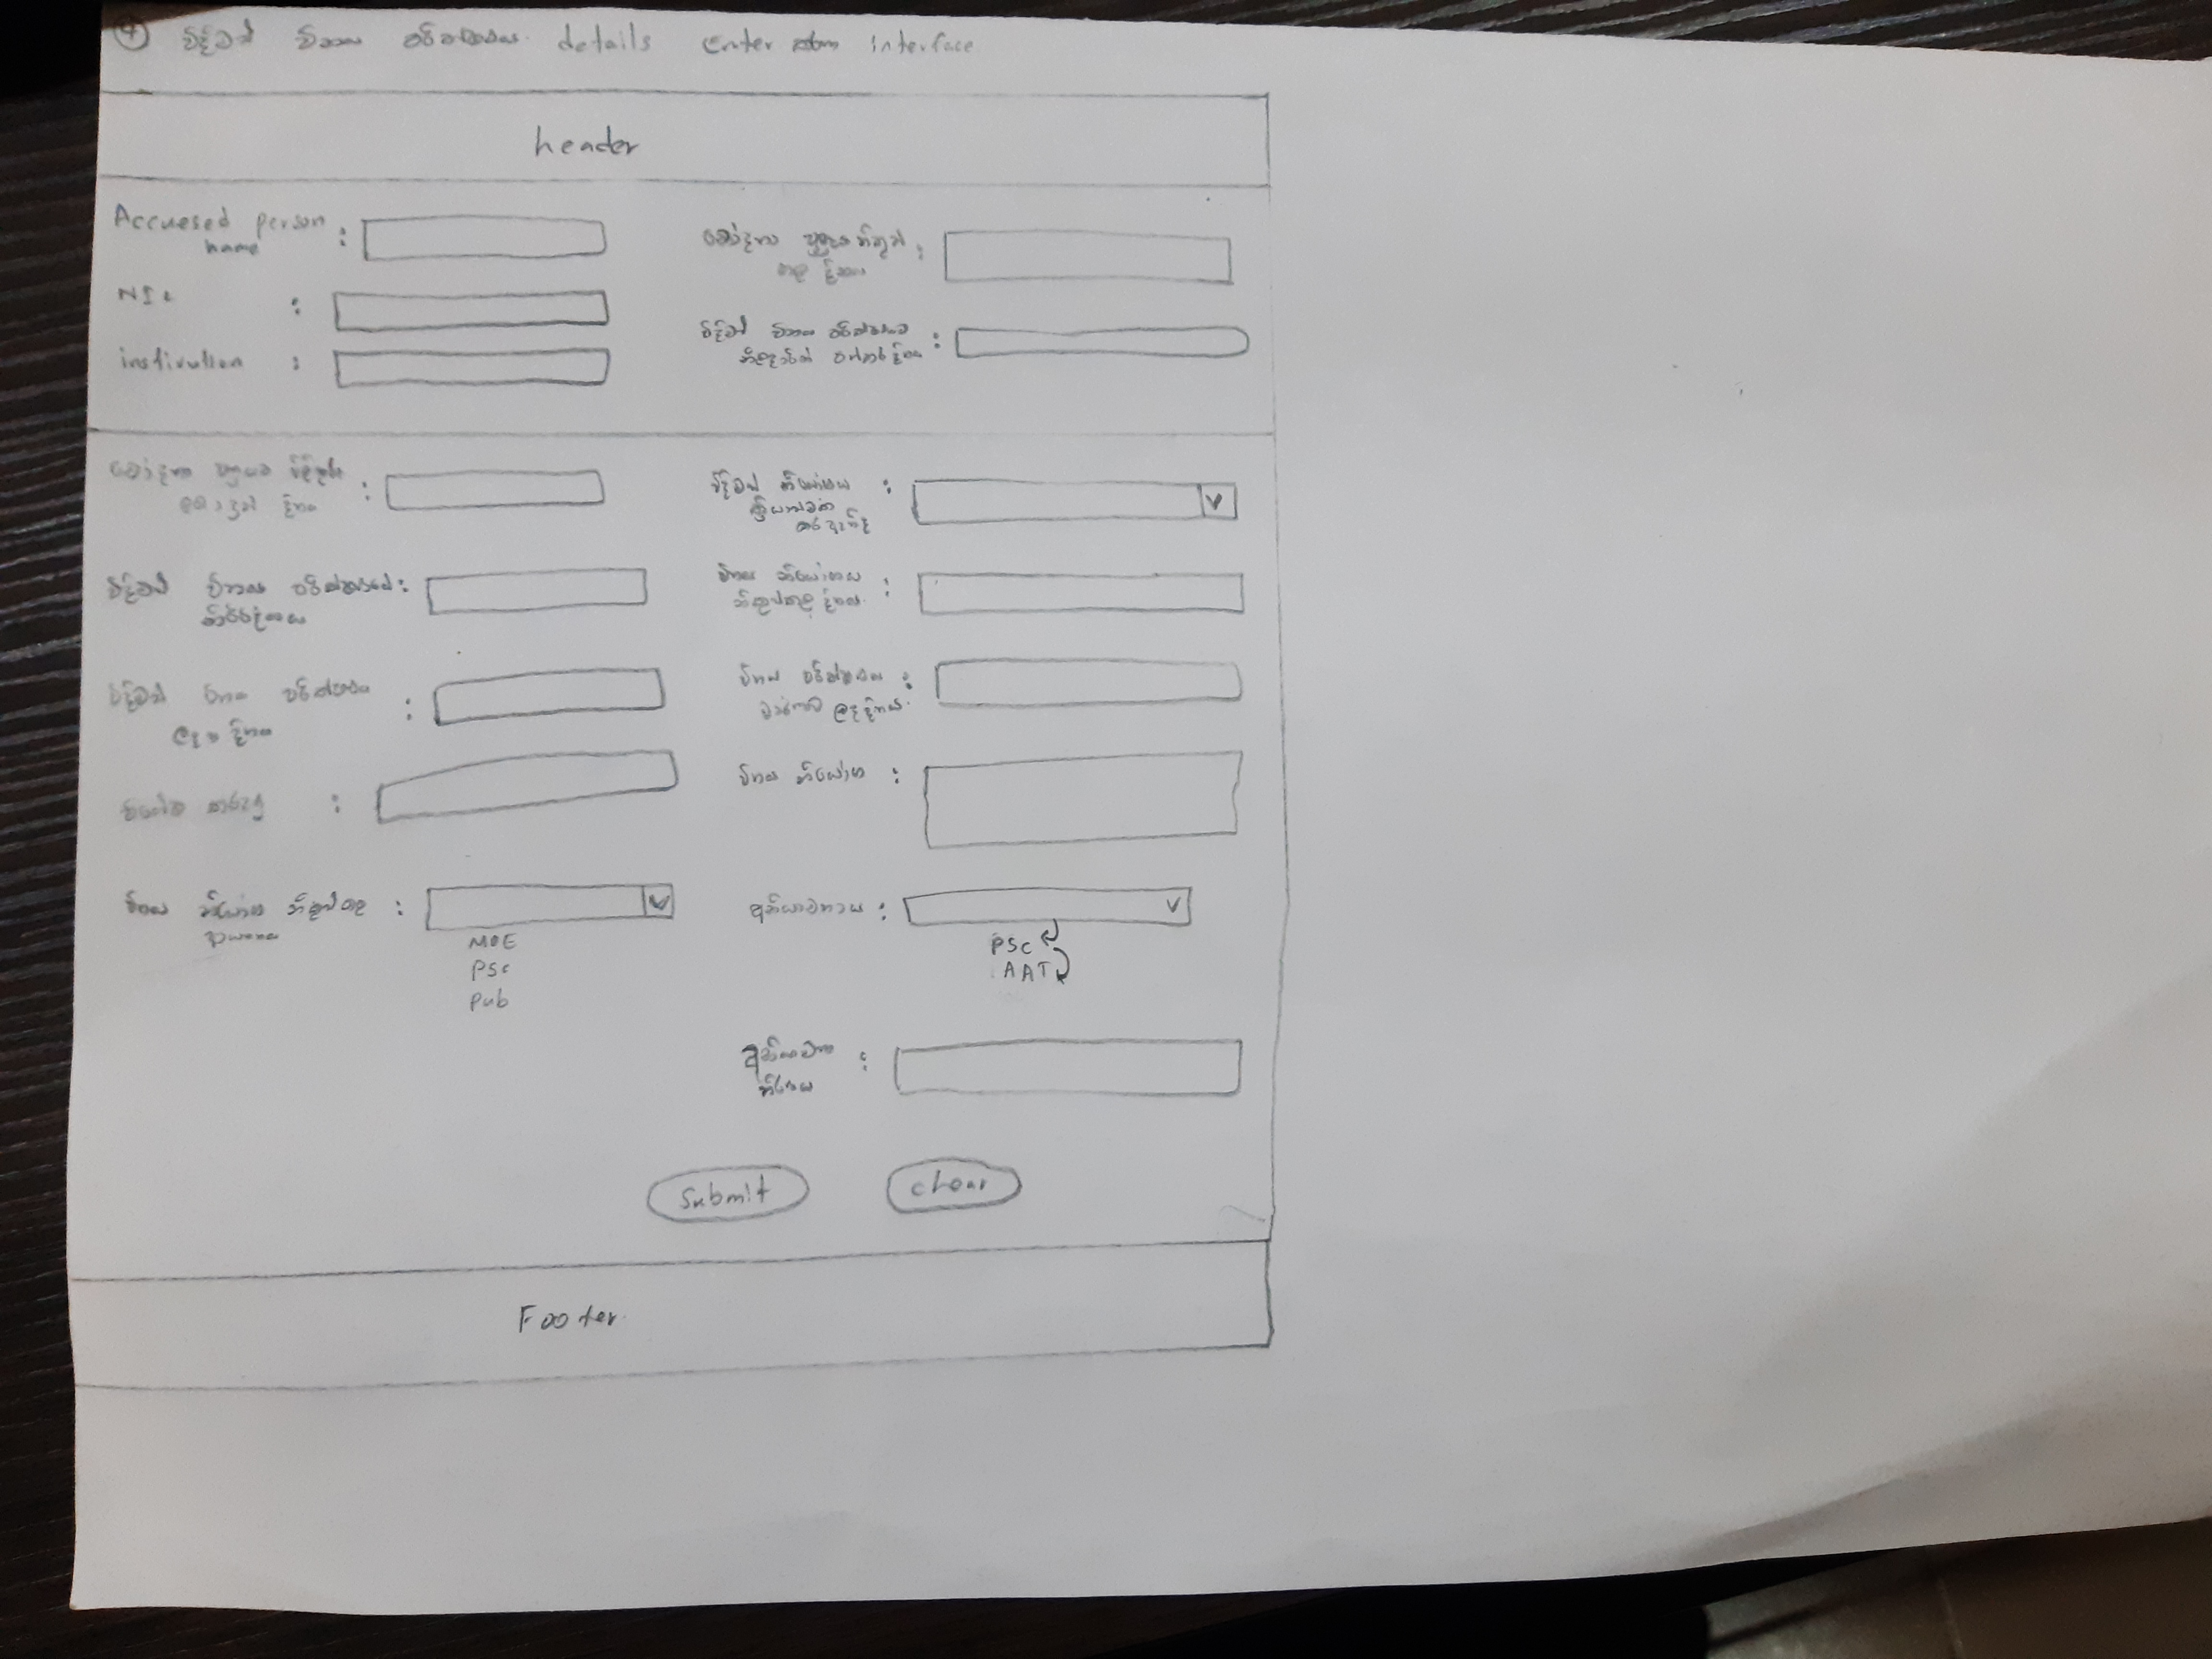 ④ විධිමත් විනය පරීක්ෂණය details enter interface
header
Accuesed person :
name
NIC :
instivution :
චෝදනා පත්‍රය නිකුත් :
කල දිනය
විධිමත් විනය පරීක්ෂණ :
නිලධාරීන් පත්කර දිනය
චෝදනා පත්‍රයට පිළිතුරු :
දිනය
විධිමත් විනය පරීක්ෂණයේ :
නිර්දේශය
විධිමත් විනය පරීක්ෂණය :
ලද දිනය
විශේෂ කරුණු :
විනය නියෝග නිකුත් කල :
ආයතනය
MOE
PSC
Pub
විධිමත් නියෝගය :
ක්‍රියාත්මක
කර ඇතිද
විනය නියෝගය :
නිකුත්කල දිනය
විනය පරීක්ෂණය :
වාර්තාව ලද දිනය
විනය නියෝගය :
අභියාචනය :
PSC
AAT
අභියාචනා :
තීරණය
Submit
clear
Footer